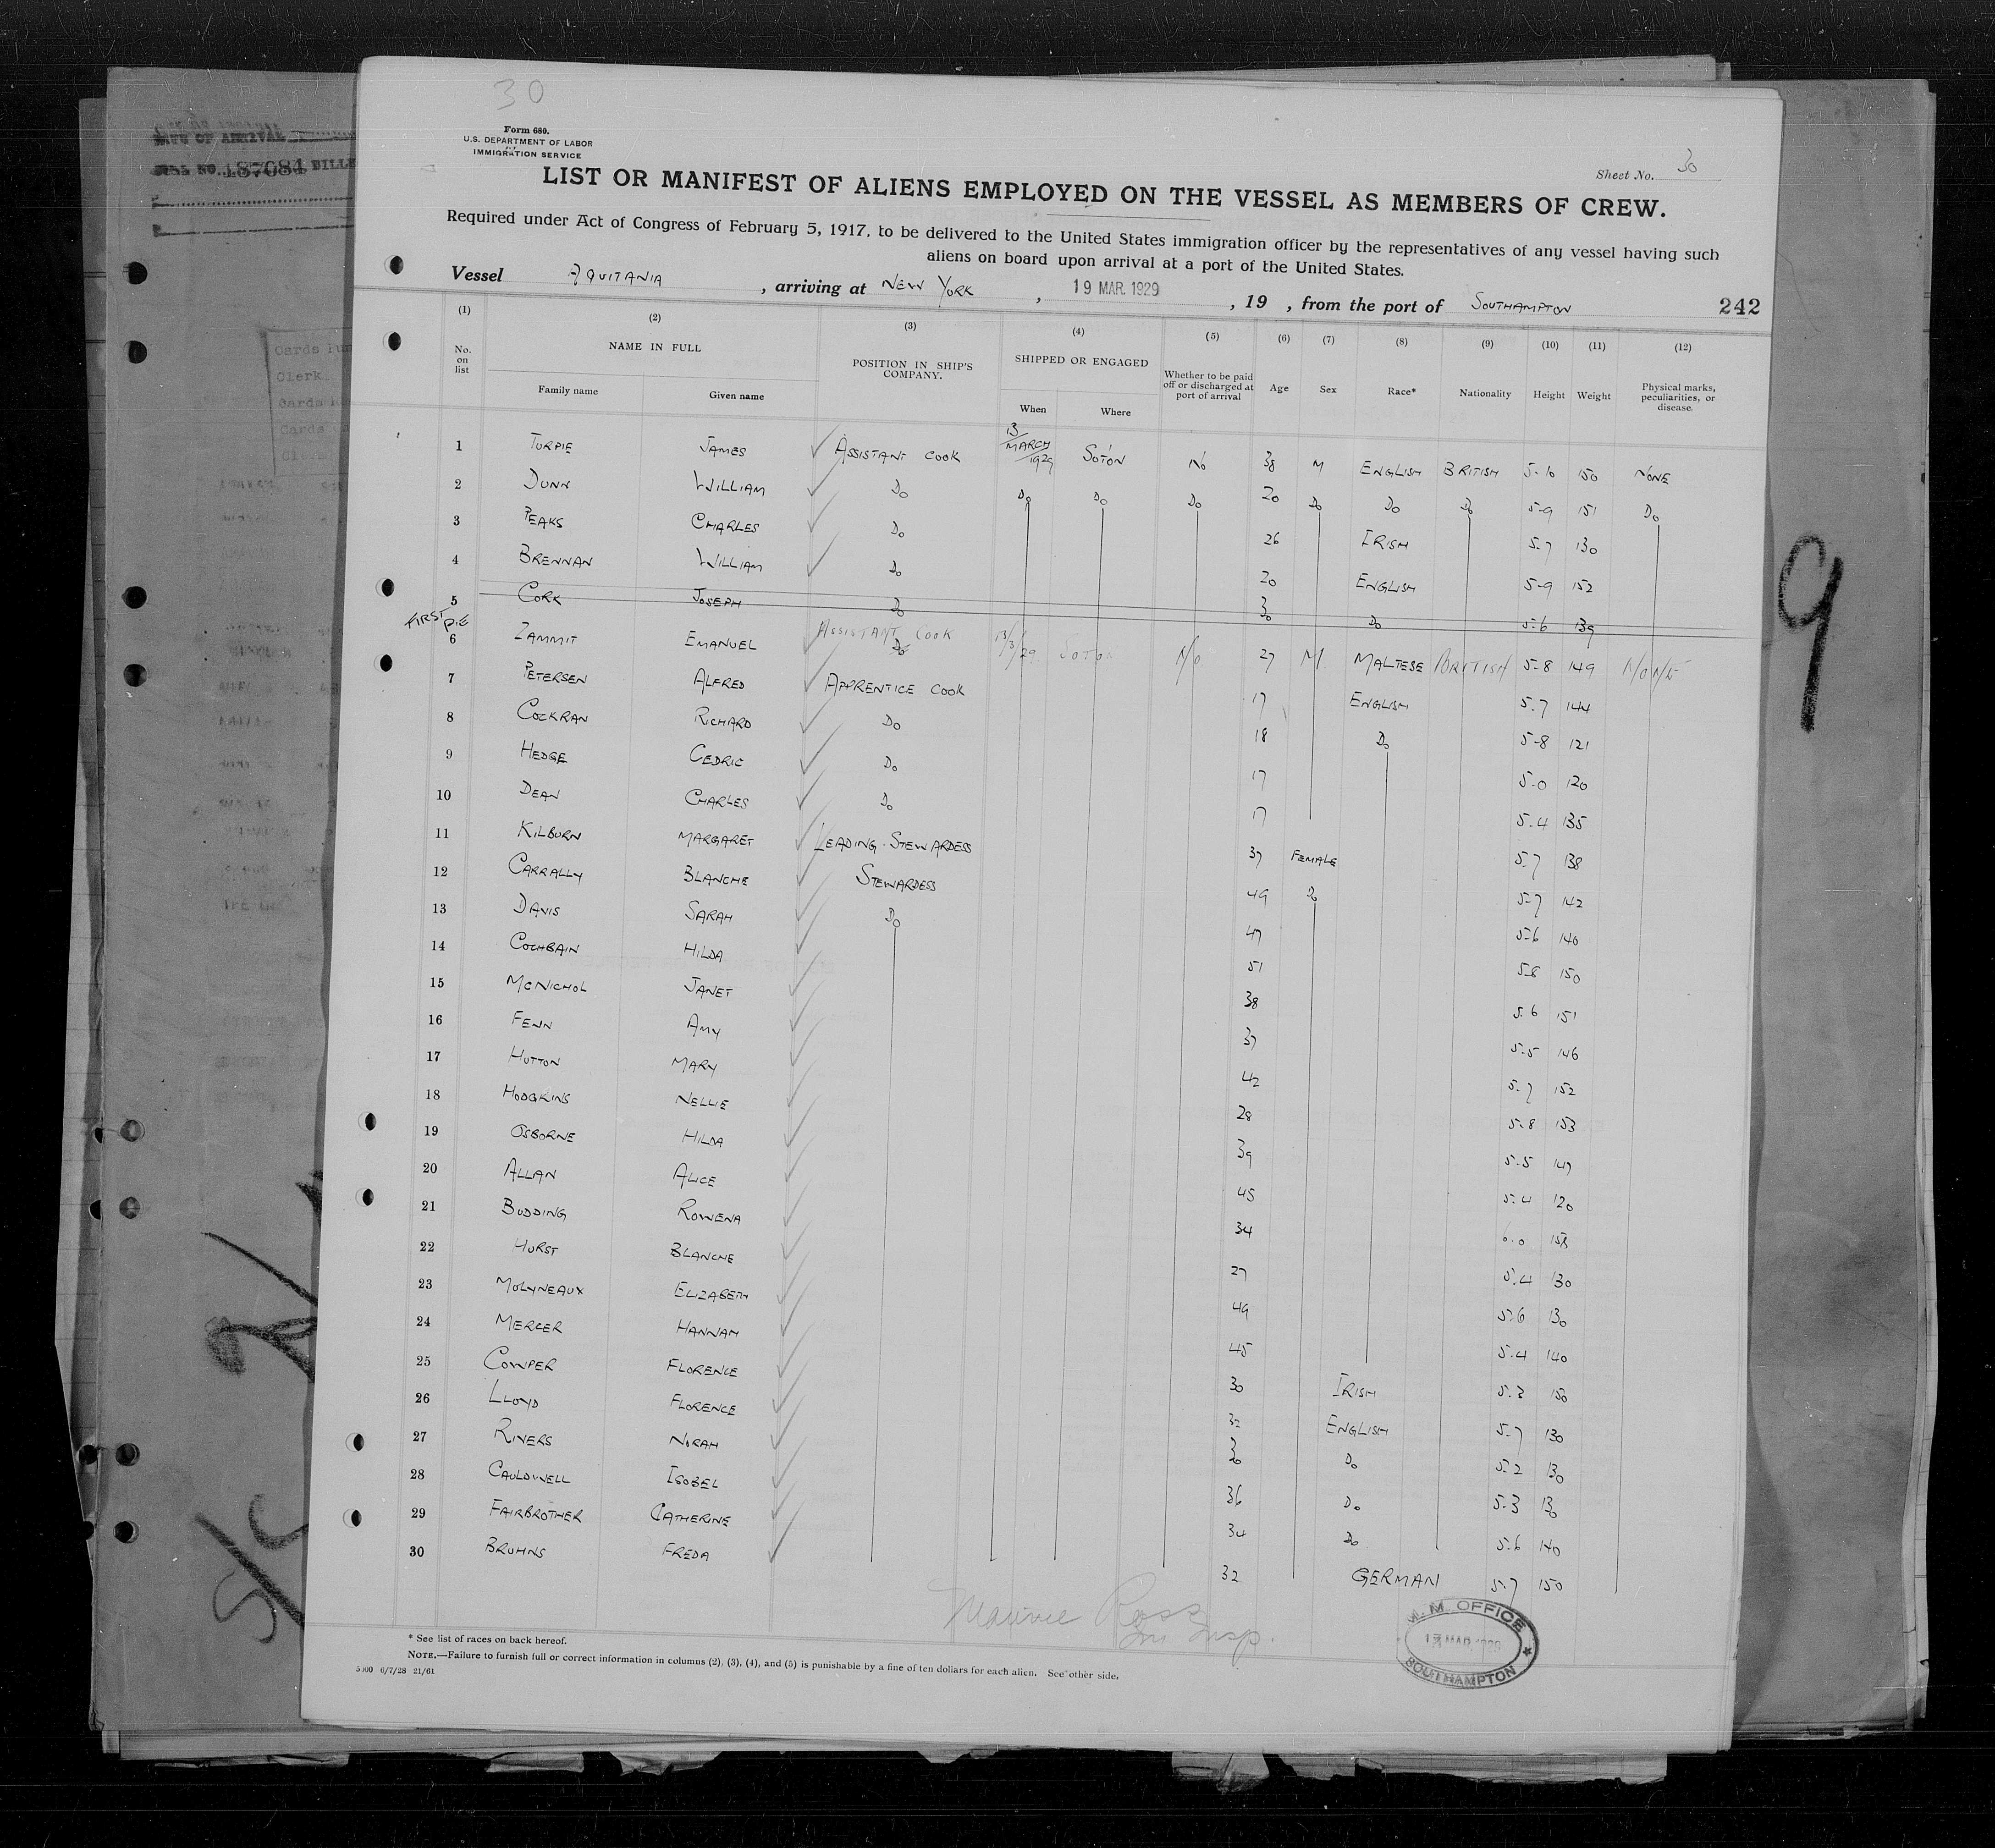 30
Form 680.
U.S. DEPARTMENT OF LABOR
IMMIGRATION SERVICE
Sheet No. 30
LIST OR MANIFEST OF ALIENS EMPLOYED ON THE VESSEL AS MEMBERS OF CREW.
Required under Act of Congress of February 5, 1917, to be delivered to the United States immigration officer by the representatives of any vessel having such
aliens on board upon arrival at a port of the United States.
Vessel AQUITANIA, arriving at NEW YORK, 19 MAR. 1929, 19 , from the port of SOUTHAMPTON 242
(1) (2) (3) (4) (5) (6) (7) (8) (9) (10) (11) (12)
No. on list NAME IN FULL POSITION IN SHIP'S COMPANY. SHIPPED OR ENGAGED Whether to be paid off or discharged at port of arrival Age Sex Race* Nationality Height Weight Physical marks, peculiarities, or disease.
Family name Given name When Where
1 TURPIE JAMES ASSISTANT COOK 13/MARCH/1929 SOTON NO 38 M ENGLISH BRITISH 5-10 150 NONE
2 DUNN WILLIAM DO DO DO DO 20 DO DO DO 5-9 151 DO
3 PEAKS CHARLES DO 26 IRISH 5-7 130
4 BRENNAN WILLIAM DO 20 ENGLISH 5-9 152
5 CORK JOSEPH DO 30 DO 5-6 139
FIRST PIE
6 ZAMMIT EMANUEL ASSISTANT COOK DO 13/3/29 SOTON NO 27 M MALTESE BRITISH 5-8 149 NONE
7 PETERSEN ALFRED APPRENTICE COOK 17 ENGLISH 5-7 144
8 COCKRAN RICHARD DO 18 DO 5-8 121
9 HEDGE CEDRIC DO 17 5-0 120
10 DEAN CHARLES DO 17 5-4 135
11 KILBURN MARGARET LEADING-STEWARDESS 37 FEMALE 5-7 138
12 CARRALLY BLANCHE STEWARDESS 49 DO 5-7 142
13 DAVIS SARAH DO 47 5-6 140
14 COCHBAIN HILDA 51 5-8 150
15 MCNICHOL JANET 38 5-6 151
16 FENN AMY 37 5-5 146
17 HUTTON MARY 42 5-7 152
18 HODGKINS NELLIE 28 5-8 153
19 OSBORNE HILDA 39 5-5 147
20 ALLAN ALICE 45 5-4 120
21 BUDDING ROWENA 34 6-0 158
22 HURST BLANCHE 27 5-4 130
23 MOLYNEAUX ELIZABETH 49 5-6 130
24 MERCER HANNAH 45 5-4 140
25 COWPER FLORENCE 30 IRISH 5-3 150
26 LLOYD FLORENCE 32 ENGLISH 5-7 130
27 RIVERS NORAH 30 DO 5-2 130
28 CAULDWELL ISOBEL 36 DO 5-3 130
29 FAIRBROTHER CATHERINE 34 DO 5-6 140
30 BRUHNS FREDA 32 GERMAN 5-7 150
Maurice Ross
Im Insp.
* See list of races on back hereof.
NOTE.—Failure to furnish full or correct information in columns (2), (3), (4), and (5) is punishable by a fine of ten dollars for each alien. See other side.
5000 6/7/28 21/61
M. M. OFFICE
SOUTHAMPTON
OF ARRIVAL
NO. 187084
Clerk
9